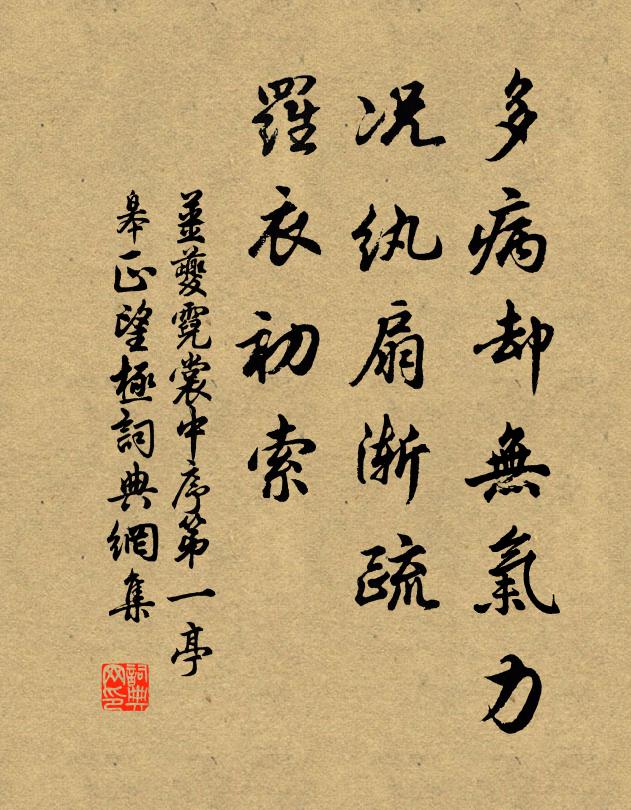 多病却無氣力
况纨扇渐疏
羅衣初索
薑夔霓裳中序第一亭
皋正望極詞典網集
詞典网印